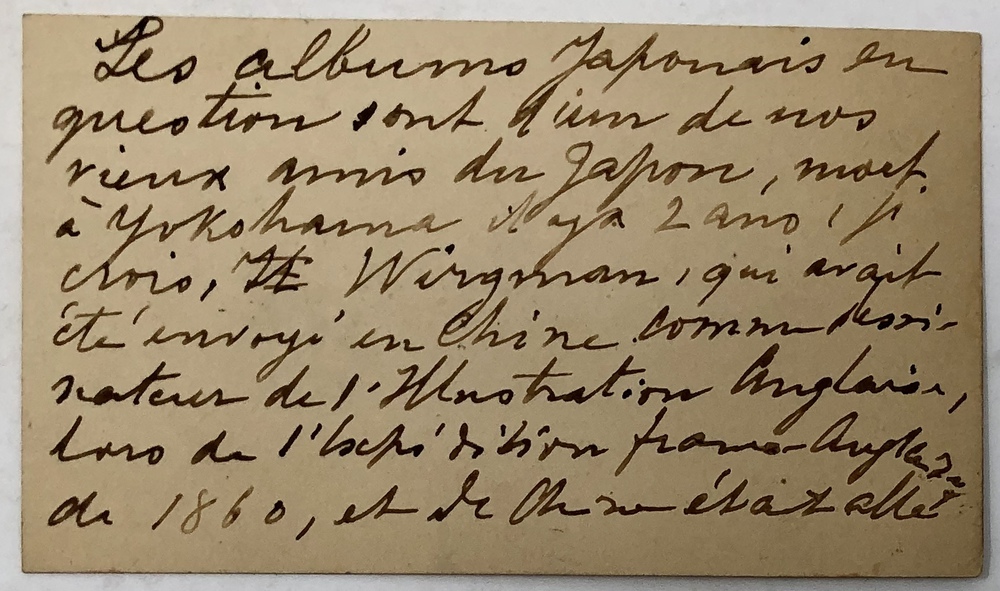 Les albums Japonais en
question sont d'un de nos
vieux amis du Japon, mort
à Yokohama il y a 2 ans, je
crois, Wirgman, qui avait
été envoyé en Chine comme dessi-
nateur de l'Illustration Anglaise,
lors de l'Expédition franco-Anglaise
de 1860, et de Chine était allé